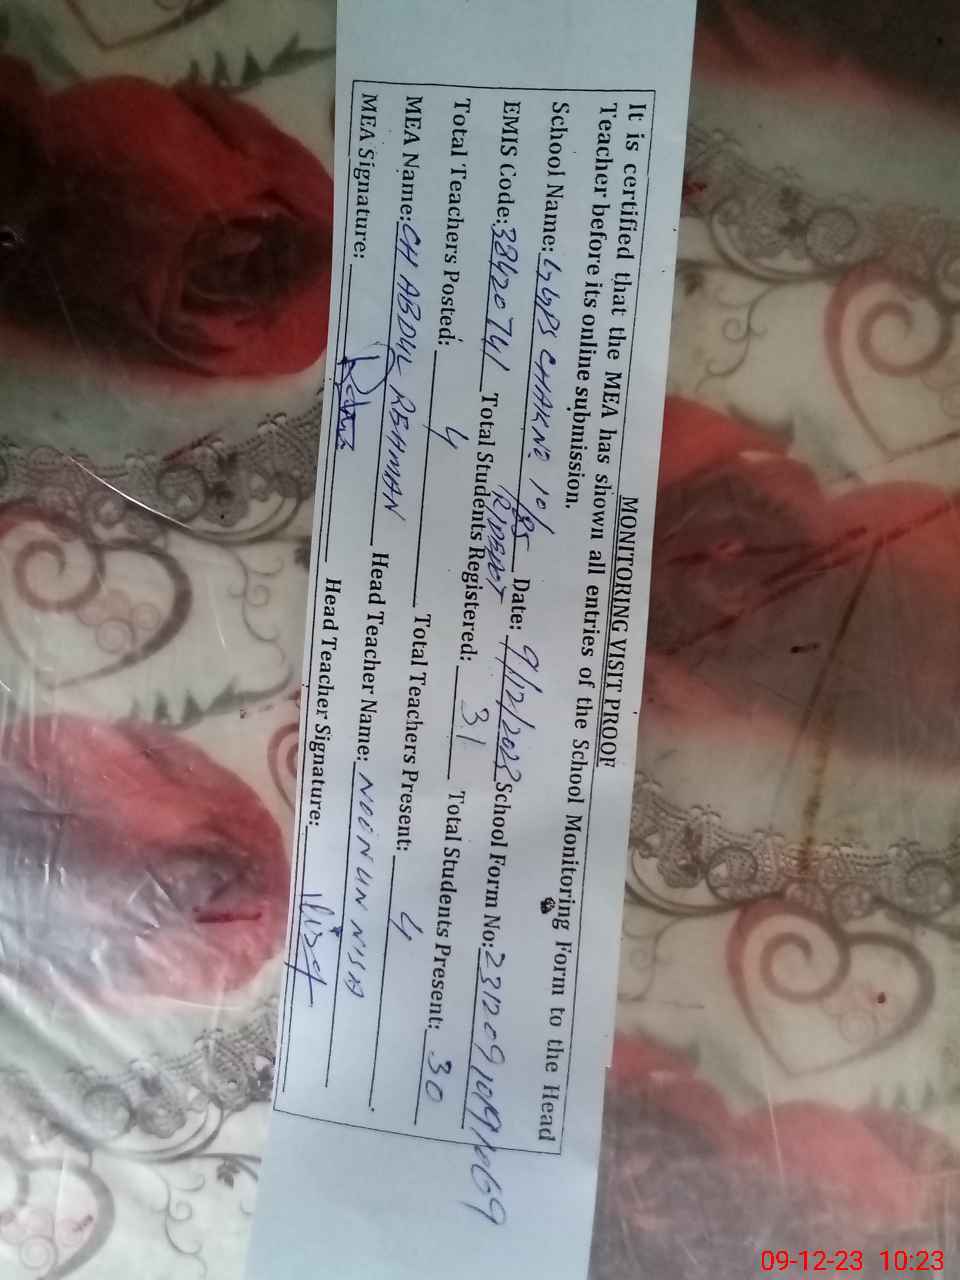 MONITORING VISIT PROOF
It is certified that the MEA has shown all entries of the School Monitoring Form to the Head
Teacher before its online submission.
School Name: GGPS CHAK NO 10/ Date: 9/12/2023 School Form No: 23120910191069
EMIS Code: 38420741 Total Students Registered: 31 Total Students Present: 30
Total Teachers Posted: 4 Total Teachers Present: 4
MEA Name: CH ABDUL REHMAN Head Teacher Name: NOON UN NISA
MEA Signature: Head Teacher Signature:
09-12-23 10:23